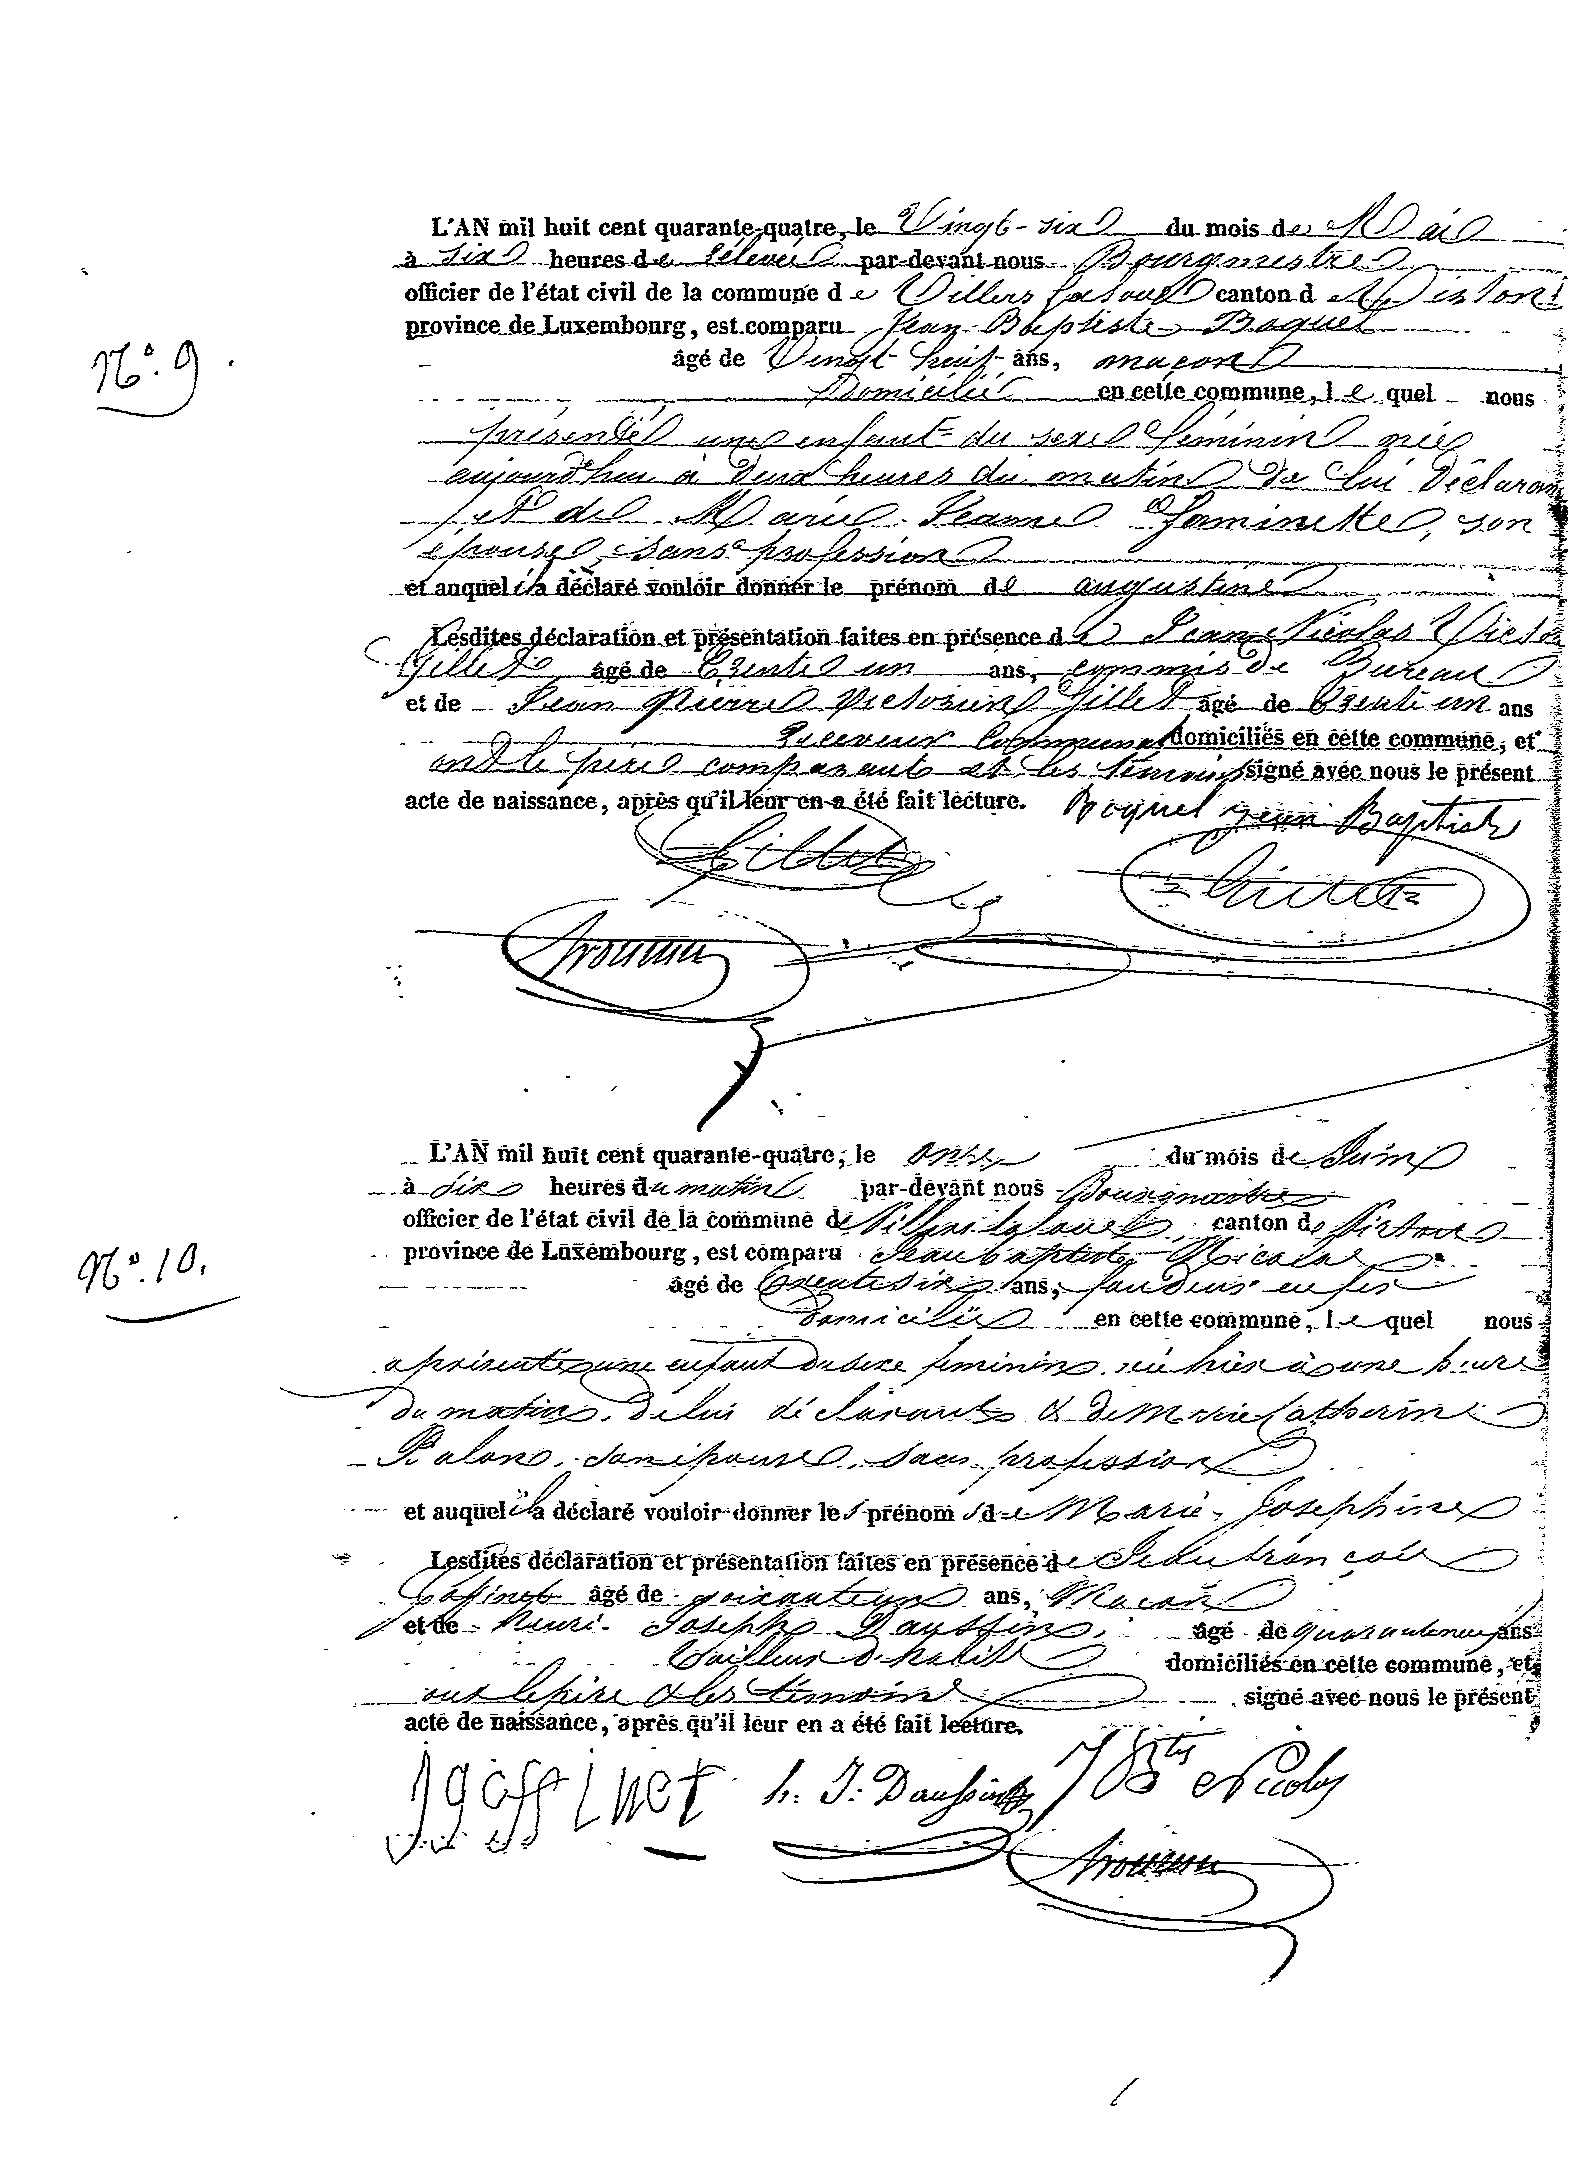 L'AN mil huit cent quarante-quatre, le Vingt-six du mois de Mai
à six heures de relevée par-devant nous Bourgmestre
officier de l'état civil de la commune de Villers la loue canton de Virton
province de Luxembourg, est comparu Jean Baptiste Roquet
N° 9.
âgé de Vingt huit ans, maçon
Domicilié en cette commune, lequel nous
présenté une enfant du sexe féminin née
aujourd'hui à deux heures du matin de lui Déclarant
et de Marie Jeanne Saminette, son
épouse, sans profession
et auquel il a déclaré vouloir donner le prénom de augustine
Lesdites déclaration et présentation faites en présence de Jean Nicolas Victor
Gillet âgé de Trente un ans, commis de Bureau
et de Jean Pierre Victorien Gillet âgé de Trente un ans
Receveur Communal domiciliés en cette commune, et
ont le père comparant et les témoins signé avec nous le présent
acte de naissance, après qu'il leur en a été fait lecture. Roquet jean Baptiste
Gillet
L'AN mil huit cent quarante-quatre, le onze du mois de Juin
à six heures du matin par-devant nous Bourgmestre
officier de l'état civil de la commune de Villers la loue, canton de Virton
province de Luxembourg, est comparu Jean baptiste Nicolas
N° 10.
âgé de trente six ans, fondeur en fer
domicilié en cette commune, lequel nous
a présenté une enfant du sexe feminin née hier à une heure
du matin, de lui déclarant & de Marie Catherine
Ralon, son épouse, sans profession
et auquel il a déclaré vouloir donner les prénoms de Marie Josephine
Lesdites déclaration et présentation faites en présence de Jean françois
Goffinet âgé de soixante un ans, Maçon
et de henri Joseph Daussin, âgé de quarante neuf ans
tailleur d'habits domiciliés en cette commune, et
ont le père & les témoins signé avec nous le présent
acte de naissance, après qu'il leur en a été fait lecture.
J g offinet h. J. Daussin J Bte Nicolas